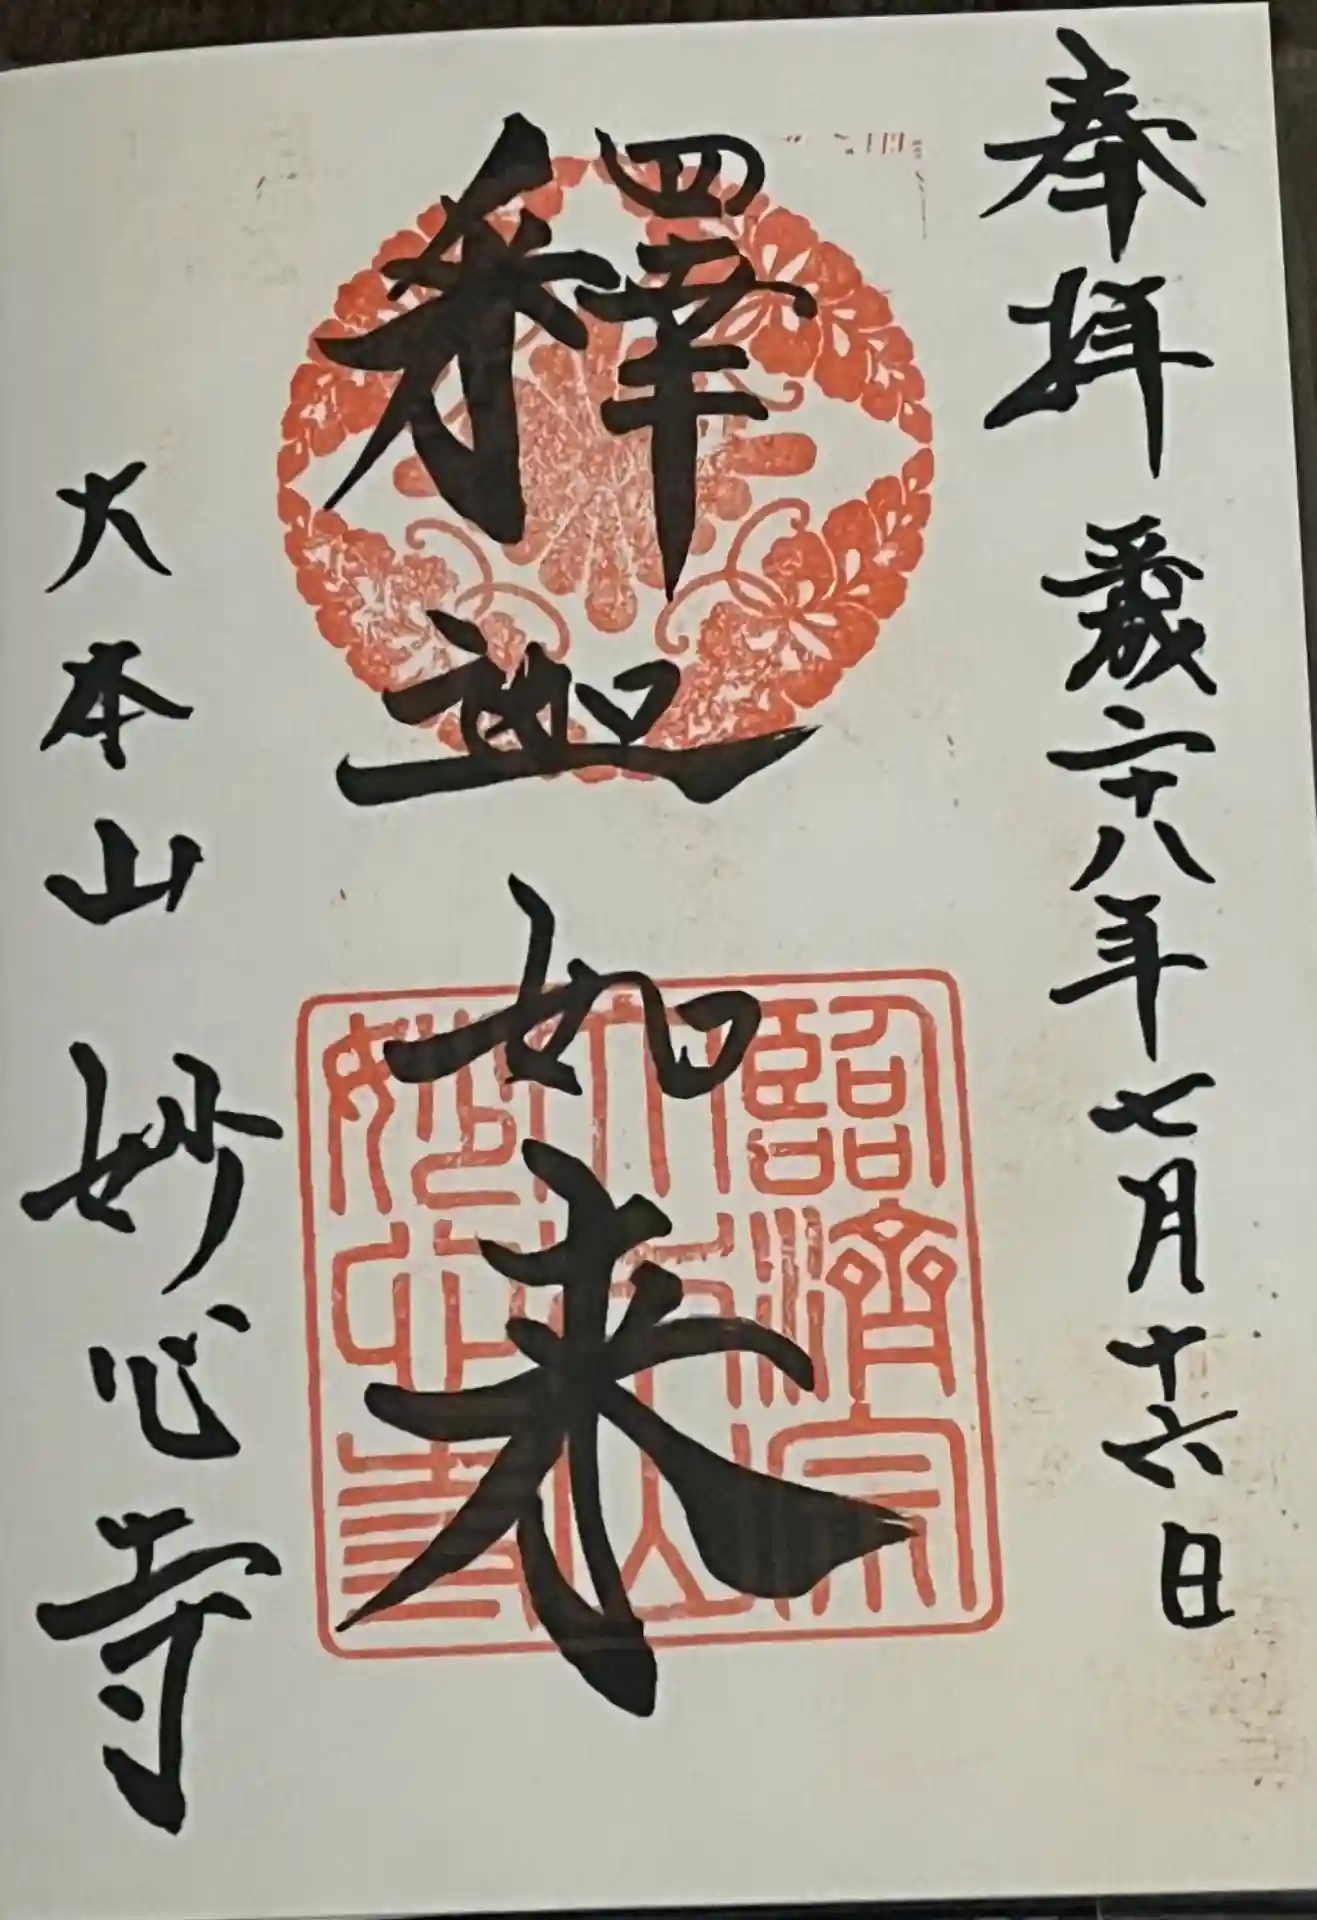 奉拝 平成二十八年七月十六日
釋迦如来
大本山 妙心寺
臨濟宗
大本山
妙心寺